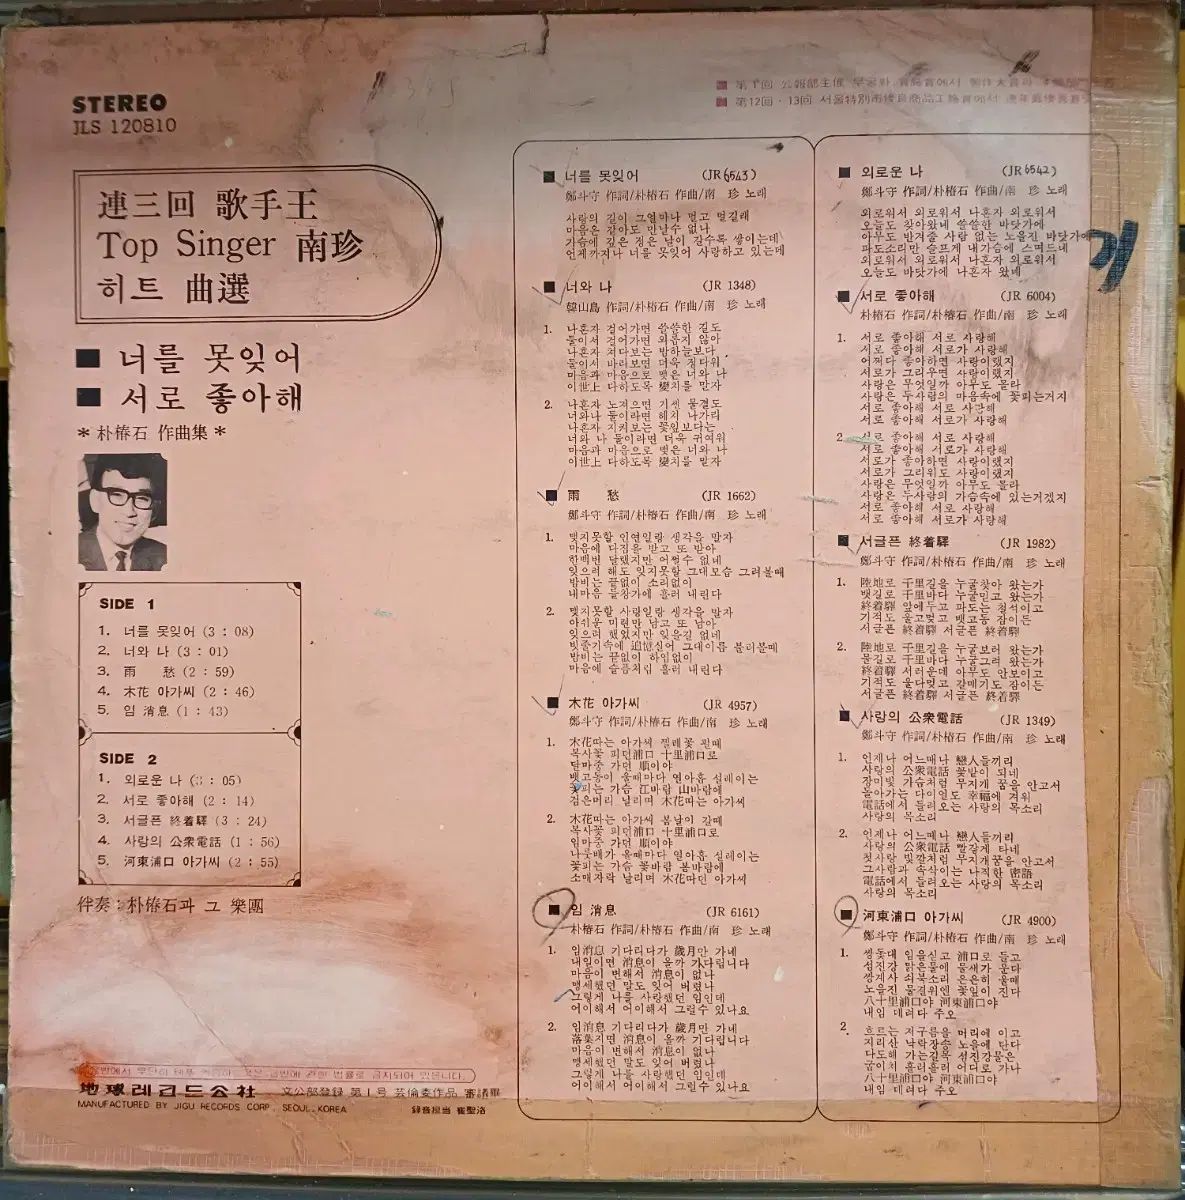 STEREO
JLS 120810
連三回 歌手王
Top Singer 南珍
히트 曲選
■ 너를 못잊어
■ 서로 좋아해
* 朴椿石 作曲集 *
SIDE 1
1. 너를 못잊어 (3 : 08)
2. 너와 나 (3 : 01)
3. 雨 愁 (2 : 59)
4. 木花 아가씨 (2 : 46)
5. 임 消息 (1 : 43)
SIDE 2
1. 외로운 나 (3 : 05)
2. 서로 좋아해 (2 : 14)
3. 서글픈 終着驛 (3 : 24)
4. 사랑의 公衆電話 (1 : 56)
5. 河東浦口 아가씨 (2 : 55)
伴奏 : 朴椿石과 그 樂團
地球레코드公社 文公部登録 第1号 芸倫委作品 審議畢
MANUFACTURED BY JIGU RECORDS CORP. SEOUL, KOREA 録音担当 崔聖洛
■ 第12回・13回 서울特別市優良商品工
■ 너를 못잊어 (JR 6543)
鄭斗守 作詞/朴椿石 作曲/南 珍 노래
사랑의 길이 그얼마나 멀고 멀길래
마음은 같아도 만날수 없나
가슴에 깊은 정은 날이 갈수록 쌓이는데
언제까지나 너를 못잊어 사랑하고 있는데
■ 너와 나 (JR 1348)
韓山島 作詞/朴椿石 作曲/南 珍 노래
1. 나혼자 걸어가면 쓸쓸한 길도
둘이서 걸어가면 외롭지 않아
나혼자 쳐다보는 밤하늘보다
둘이서 바라보면 더욱 정다워
마음과 마음으로 맺은 너와 나
이世上 다하도록 變치를 말자
2. 나혼자 노저으면 기센 물결도
너와나 둘이라면 헤치 나가리
나혼자 지켜보는 꽃잎보다는
너와 나 둘이라면 더욱 귀여워
마음과 마음으로 맺은 너와 나
이世上 다하도록 變치를 말자
■ 雨 愁 (JR 1662)
鄭斗守 作詞/朴椿石 作曲/南 珍 노래
1. 맺지못할 인연일랑 생각을 말자
마음에 다짐을 받고 또 받아
한백번 달랬지만 어쩔수 없네
잊으려 해도 잊지못할 그대모습 그려볼때
밤비는 끝없이 소리없이
내마음 들창가에 흘러 내린다
2. 맺지못할 사랑일랑 생각을 말자
아쉬운 미련만 남고 또 남아
잊으려 했었지만 잊을길 없네
빗줄기속에 追憶실어 그대이름 불러볼때
밤비는 끝없이 하염없이
마음에 슬픔처럼 흘러 내린다
■ 木花 아가씨 (JR 4957)
鄭斗守 作詞/朴椿石 作曲/南 珍 노래
1. 木花따는 아가씨 찔레꽃 필때
복사꽃 피던浦口 十里浦口로
달마중 가던 順이야
뱃고동이 울때마다 열아홉 설레이는
꽃피는 가슴 江바람 山바람에
검은머리 날리며 木花따는 아가씨
2. 木花따는 아가씨 봄날이 갈때
복사꽃 피던浦口 十里浦口로
임마중 가던 順이야
나룻배가 올때마다 열아홉 설레이는
꽃피는 가슴 꽃바람 봄바람에
소매자락 날리며 木花따던 아가씨
■ 임 消息 (JR 6161)
朴椿石 作詞/朴椿石 作曲/南 珍 노래
1. 임消息 기다리다가 歲月만 가네
내일이면 消息이 올까 기다립니다
마음이 변해서 消息이 없나
맹세했던 말도 잊어 버렸나
그렇게 나를 사랑했던 임인데
어이해서 어이해서 그럴수 있나요
2. 임消息 기다리다가 歲月만 가네
落葉지면 消息이 올까 기다립니다
마음이 변해서 消息이 없나
맹세했던 말도 잊어 버렸나
그렇게 나를 사랑했던 임인데
어이해서 어이해서 그럴수 있나요
■ 외로운 나 (JR 6542)
鄭斗守 作詞/朴椿石 作曲/南 珍 노래
외로워서 외로워서 나혼자 외로워서
오늘도 찾아왔네 쓸쓸한 바닷가에
아무도 반겨줄 사람 없는 노을진 바닷가에
파도소리만 슬프게 내가슴에 스며드네
외로워서 외로워서 나혼자 외로워서
오늘도 바닷가에 나혼자 왔네
■ 서로 좋아해 (JR 6004)
朴椿石 作詞/朴椿石 作曲/南 珍 노래
1. 서로 좋아해 서로 사랑해
서로 좋아해 서로가 사랑해
어쩌다 좋아하면 사랑이랬지
서로가 그리우면 사랑이랬지
사랑은 무엇일까 아무도 몰라
사랑은 두사람의 마음속에 꽃피는거지
서로 좋아해 서로 사랑해
서로 좋아해 서로가 사랑해
2. 서로 좋아해 서로 사랑해
서로 좋아해 서로가 사랑해
서로가 좋아하면 사랑이랬지
서로가 그리워도 사랑이랬지
사랑은 무엇일까 아무도 몰라
사랑은 두사람의 가슴속에 있는거겠지
서로 좋아해 서로 사랑해
서로 좋아해 서로가 사랑해
■ 서글픈 終着驛 (JR 1982)
鄭斗守 作詞/朴椿石 作曲/南 珍 노래
1. 陸地로 千里길을 누굴찾아 왔는가
뱃길로 千里바다 누굴믿고 왔는가
終着驛 앞에두고 파도는 철석이고
기적도 울고멎고 뱃고동 잠이든
서글픈 終着驛 서글픈 終着驛
2. 陸地로 千里길을 누굴보러 왔는가
물길로 千里바다 누굴그려 왔는가
終着驛 서러운데 아무도 안보이고
기적도 울다멎고 갈매기도 잠이든
서글픈 終着驛 서글픈 終着驛
■ 사랑의 公衆電話 (JR 1349)
鄭斗守 作詞/朴椿石 作曲/南 珍 노래
1. 언제나 어느때나 戀人들끼리
사랑의 公衆電話 꽃밭이 되네
장미빛 가슴처럼 무지개 꿈을 안고서
돌아가는 다이얼도 幸福에 겨워
電話에서 들려오는 사랑의 목소리
사랑의 목소리
2. 언제나 어느때나 戀人들끼리
사랑의 公衆電話 빨갛게 타네
첫사랑 빛깔처럼 무지개꿈을 안고서
그사람과 속삭이는 나직한 密語
電話에서 들려오는 사랑의 목소리
사랑의 목소리
■ 河東浦口 아가씨 (JR 4900)
鄭斗守 作詞/朴椿石 作曲/南 珍 노래
1. 쌍돛대 임을싣고 浦口로 들고
섬진강 맑은물에 물새가 운다
쌍계사 쇠북소리 은은히 울때
노을진 물결위엔 꽃잎이 진다
八十里浦口야 河東浦口야
내임 데려다 주오
2. 흐르는 저구름을 머리에 이고
지리산 낙락장송 노을에 탄다
다도해 가는길목 섬진강물은
굽이쳐 흘러흘러 어디로 가나
八十里浦口야 河東浦口야
내임 데려다 주오